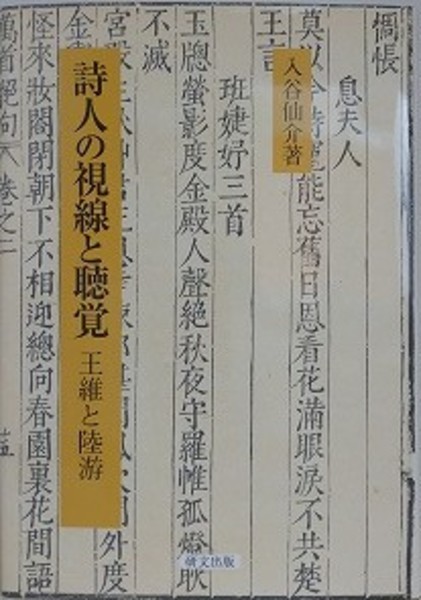 入谷仙介著
詩人の視線と聴覚
王維と陸游
研文出版
惆悵
息夫人
莫以今時寵能忘舊日恩看花滿眼淚不共楚
王言
班婕妤三首
玉牕螢影度金殿人聲絕秋夜守羅帷孤燈耿
不滅
宮殿
門外度
金
怪來妝閣閉朝下不相迎總向春園裏花間語
萬首絕句 卷之二